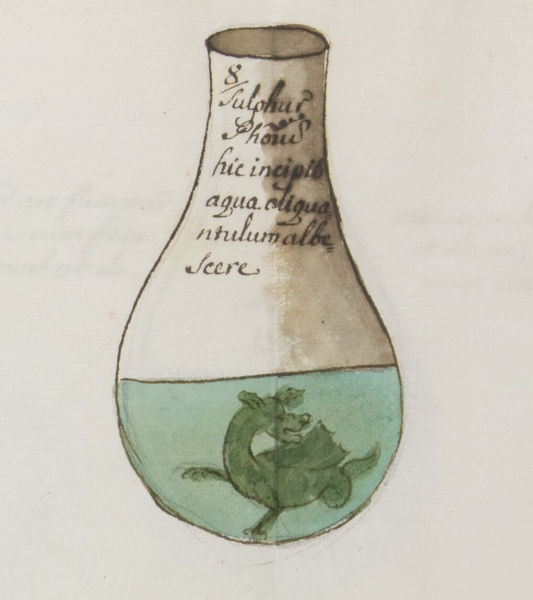 8
Sulphur
hic incipit
aqua aliqua
ntulum albe=
scere